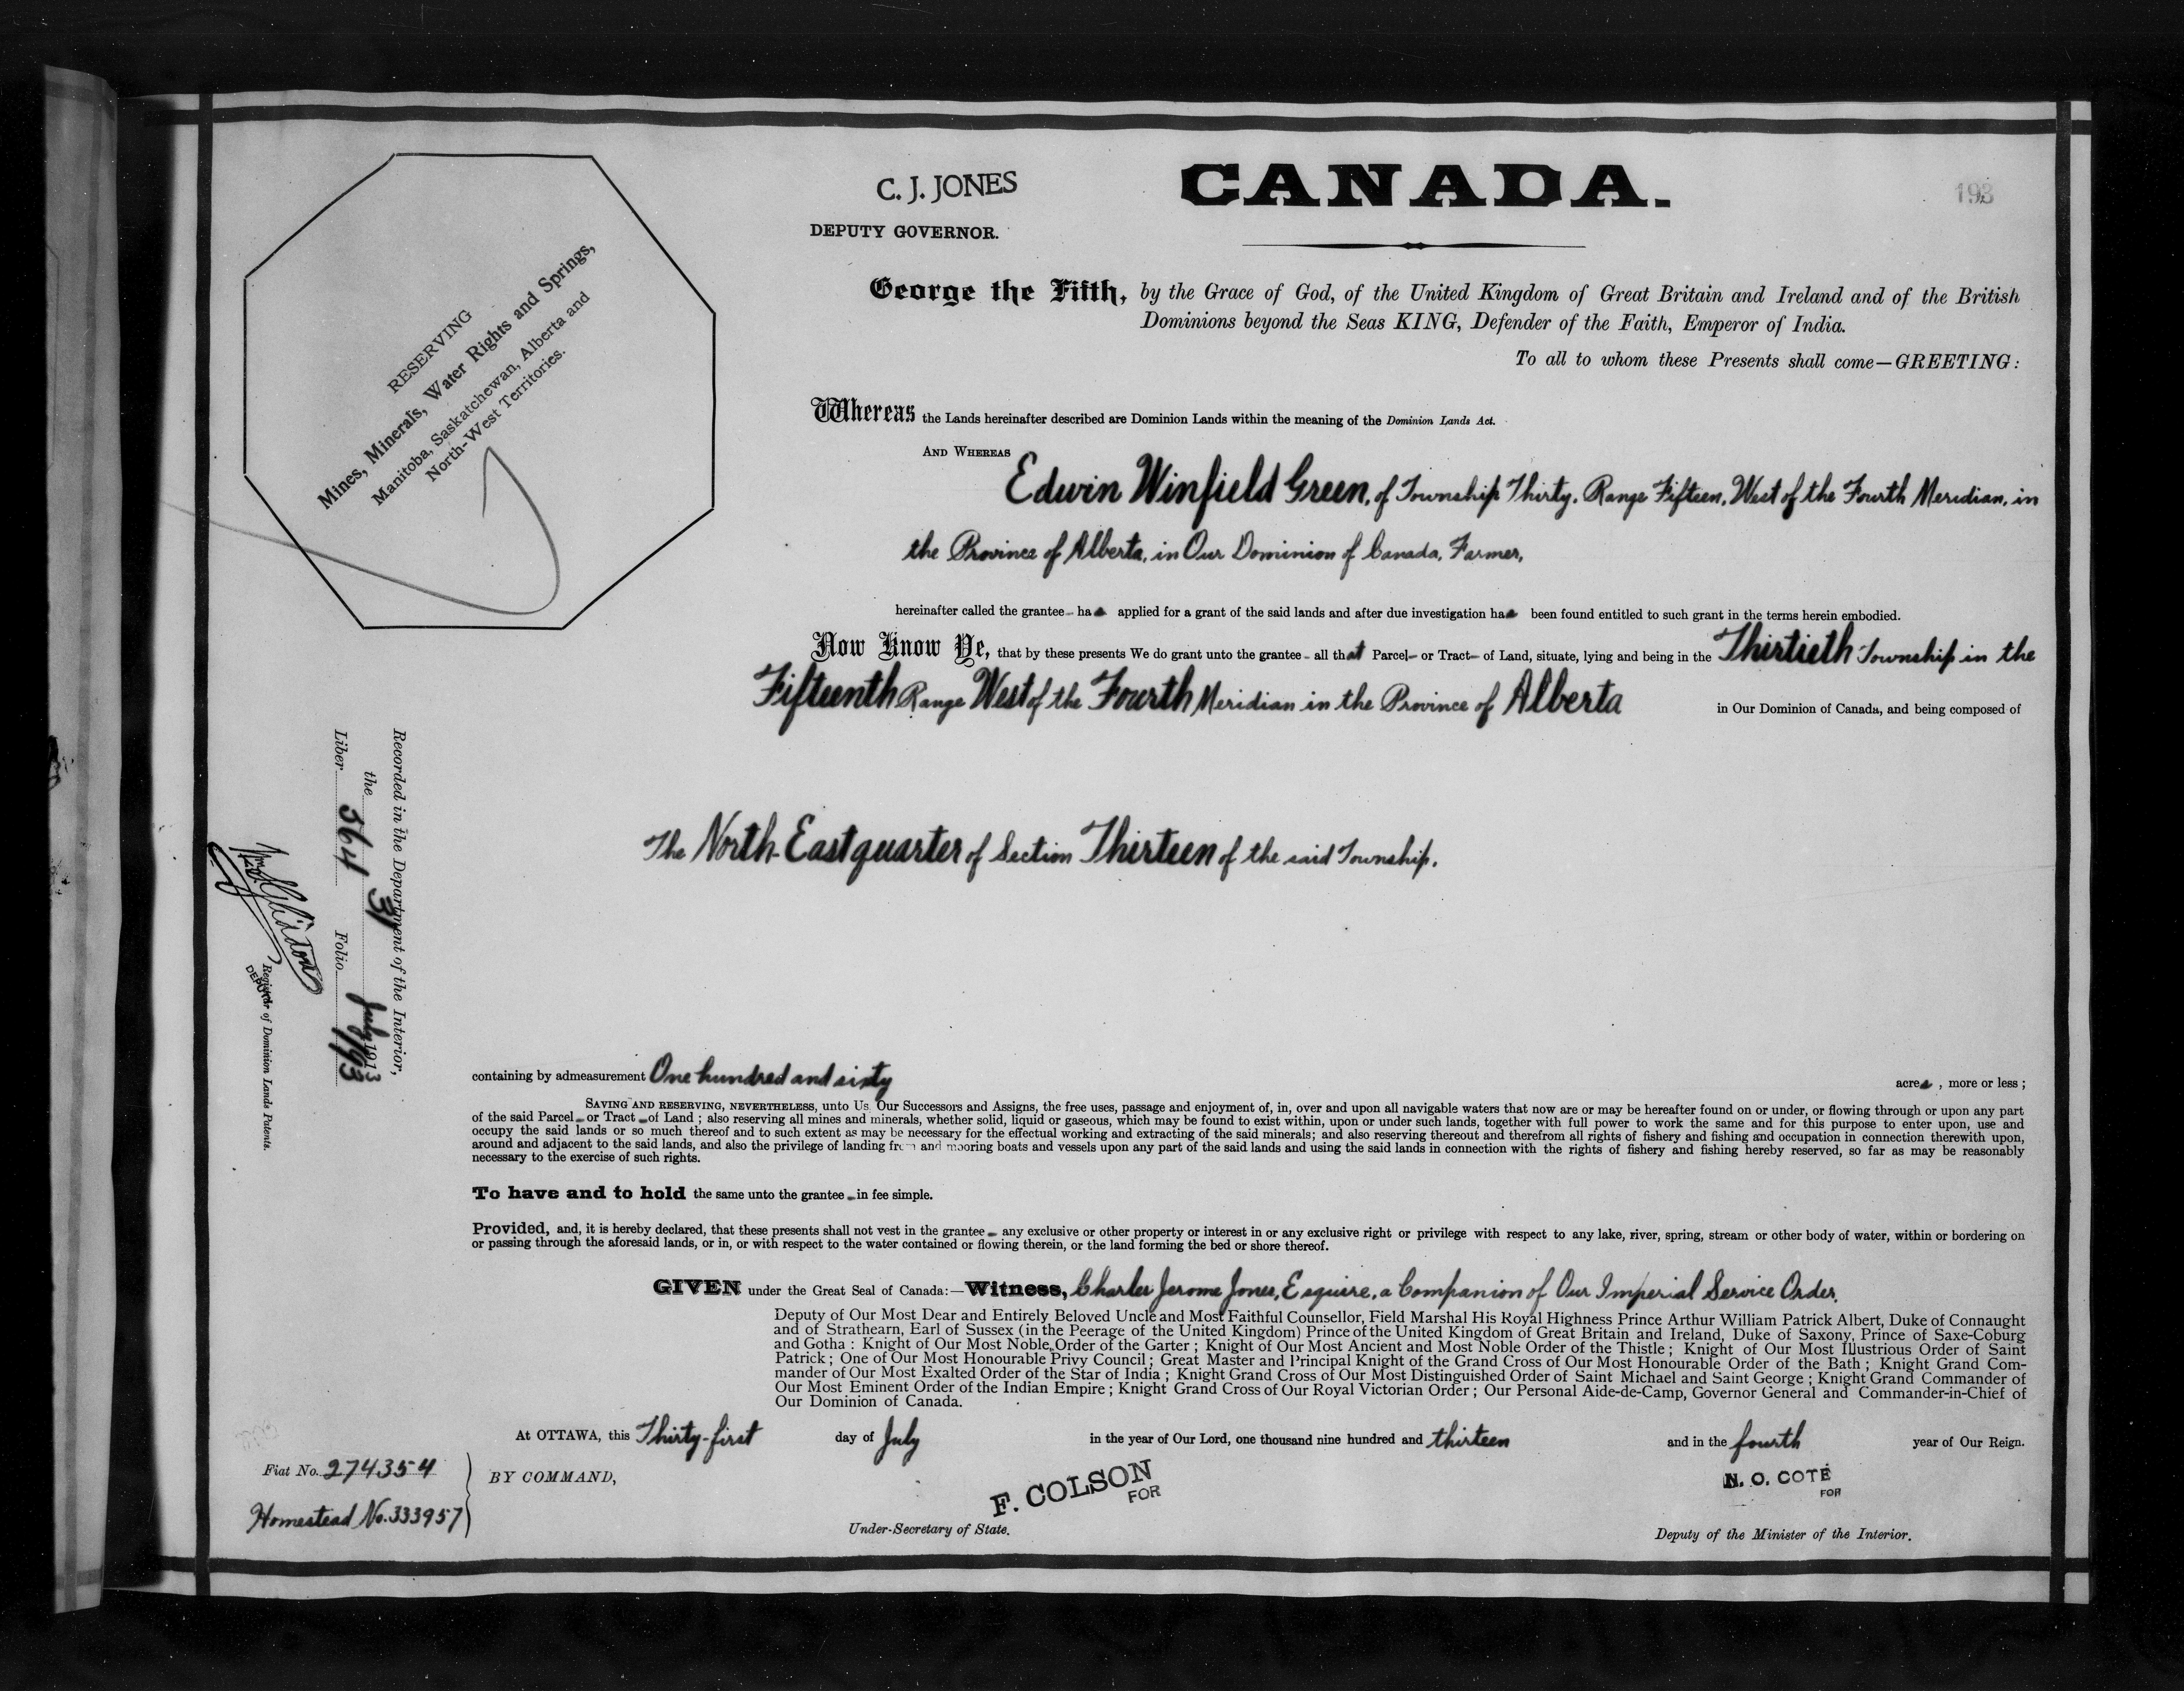 C. J. JONES
DEPUTY GOVERNOR.
CANADA.
193
RESERVING
Mines, Minerals, Water Rights and Springs,
Manitoba, Saskatchewan, Alberta and
North-West Territories.
George the Fifth, by the Grace of God, of the United Kingdom of Great Britain and Ireland and of the British
Dominions beyond the Seas KING, Defender of the Faith, Emperor of India.
To all to whom these Presents shall come—GREETING:
Whereas the Lands hereinafter described are Dominion Lands within the meaning of the Dominion Lands Act.
AND WHEREAS
Edwin Winfield Green, of Township Thirty, Range Fifteen, West of the Fourth Meridian, in
the Province of Alberta, in Our Dominion of Canada, Farmer,
hereinafter called the grantee- has applied for a grant of the said lands and after due investigation has been found entitled to such grant in the terms herein embodied.
Now Know Ye, that by these presents We do grant unto the grantee- all that Parcel- or Tract- of Land, situate, lying and being in the Thirtieth Township in the
Fifteenth Range West of the Fourth Meridian in the Province of Alberta in Our Dominion of Canada, and being composed of
The North-East quarter of Section Thirteen of the said Township.
containing by admeasurement One hundred and sixty acres, more or less;
SAVING AND RESERVING, NEVERTHELESS, unto Us, Our Successors and Assigns, the free uses, passage and enjoyment of, in, over and upon all navigable waters that now are or may be hereafter found on or under, or flowing through or upon any part
of the said Parcel- or Tract- of Land; also reserving all mines and minerals, whether solid, liquid or gaseous, which may be found to exist within, upon or under such lands, together with full power to work the same and for this purpose to enter upon, use and
occupy the said lands or so much thereof and to such extent as may be necessary for the effectual working and extracting of the said minerals; and also reserving thereout and therefrom all rights of fishery and fishing and occupation in connection therewith upon,
around and adjacent to the said lands, and also the privilege of landing from and mooring boats and vessels upon any part of the said lands and using the said lands in connection with the rights of fishery and fishing hereby reserved, so far as may be reasonably
necessary to the exercise of such rights.
To have and to hold the same unto the grantee- in fee simple.
Provided, and, it is hereby declared, that these presents shall not vest in the grantee- any exclusive or other property or interest in or any exclusive right or privilege with respect to any lake, river, spring, stream or other body of water, within or bordering on
or passing through the aforesaid lands, or in, or with respect to the water contained or flowing therein, or the land forming the bed or shore thereof.
GIVEN under the Great Seal of Canada:—Witness, Charles Jerome Jones, Esquire, a Companion of Our Imperial Service Order,
Deputy of Our Most Dear and Entirely Beloved Uncle and Most Faithful Counsellor, Field Marshal His Royal Highness Prince Arthur William Patrick Albert, Duke of Connaught
and of Strathearn, Earl of Sussex (in the Peerage of the United Kingdom) Prince of the United Kingdom of Great Britain and Ireland, Duke of Saxony, Prince of Saxe-Coburg
and Gotha: Knight of Our Most Noble Order of the Garter; Knight of Our Most Ancient and Most Noble Order of the Thistle; Knight of Our Most Illustrious Order of Saint
Patrick; One of Our Most Honourable Privy Council; Great Master and Principal Knight of the Grand Cross of Our Most Honourable Order of the Bath; Knight Grand Com-
mander of Our Most Exalted Order of the Star of India; Knight Grand Cross of Our Most Distinguished Order of Saint Michael and Saint George; Knight Grand Commander of
Our Most Eminent Order of the Indian Empire; Knight Grand Cross of Our Royal Victorian Order; Our Personal Aide-de-Camp, Governor General and Commander-in-Chief of
Our Dominion of Canada.
At OTTAWA, this Thirty-first day of July in the year of Our Lord, one thousand nine hundred and thirteen and in the fourth year of Our Reign.
BY COMMAND,
F. COLSON
FOR
Under-Secretary of State.
N. O. COTÉ
FOR
Deputy of the Minister of the Interior.
Fiat No. 274354
Homestead No. 333957
Recorded in the Department of the Interior,
the 31 July 1913
Liber 364 Folio 193
DEPUTY
Registrar of Dominion Lands Patents.